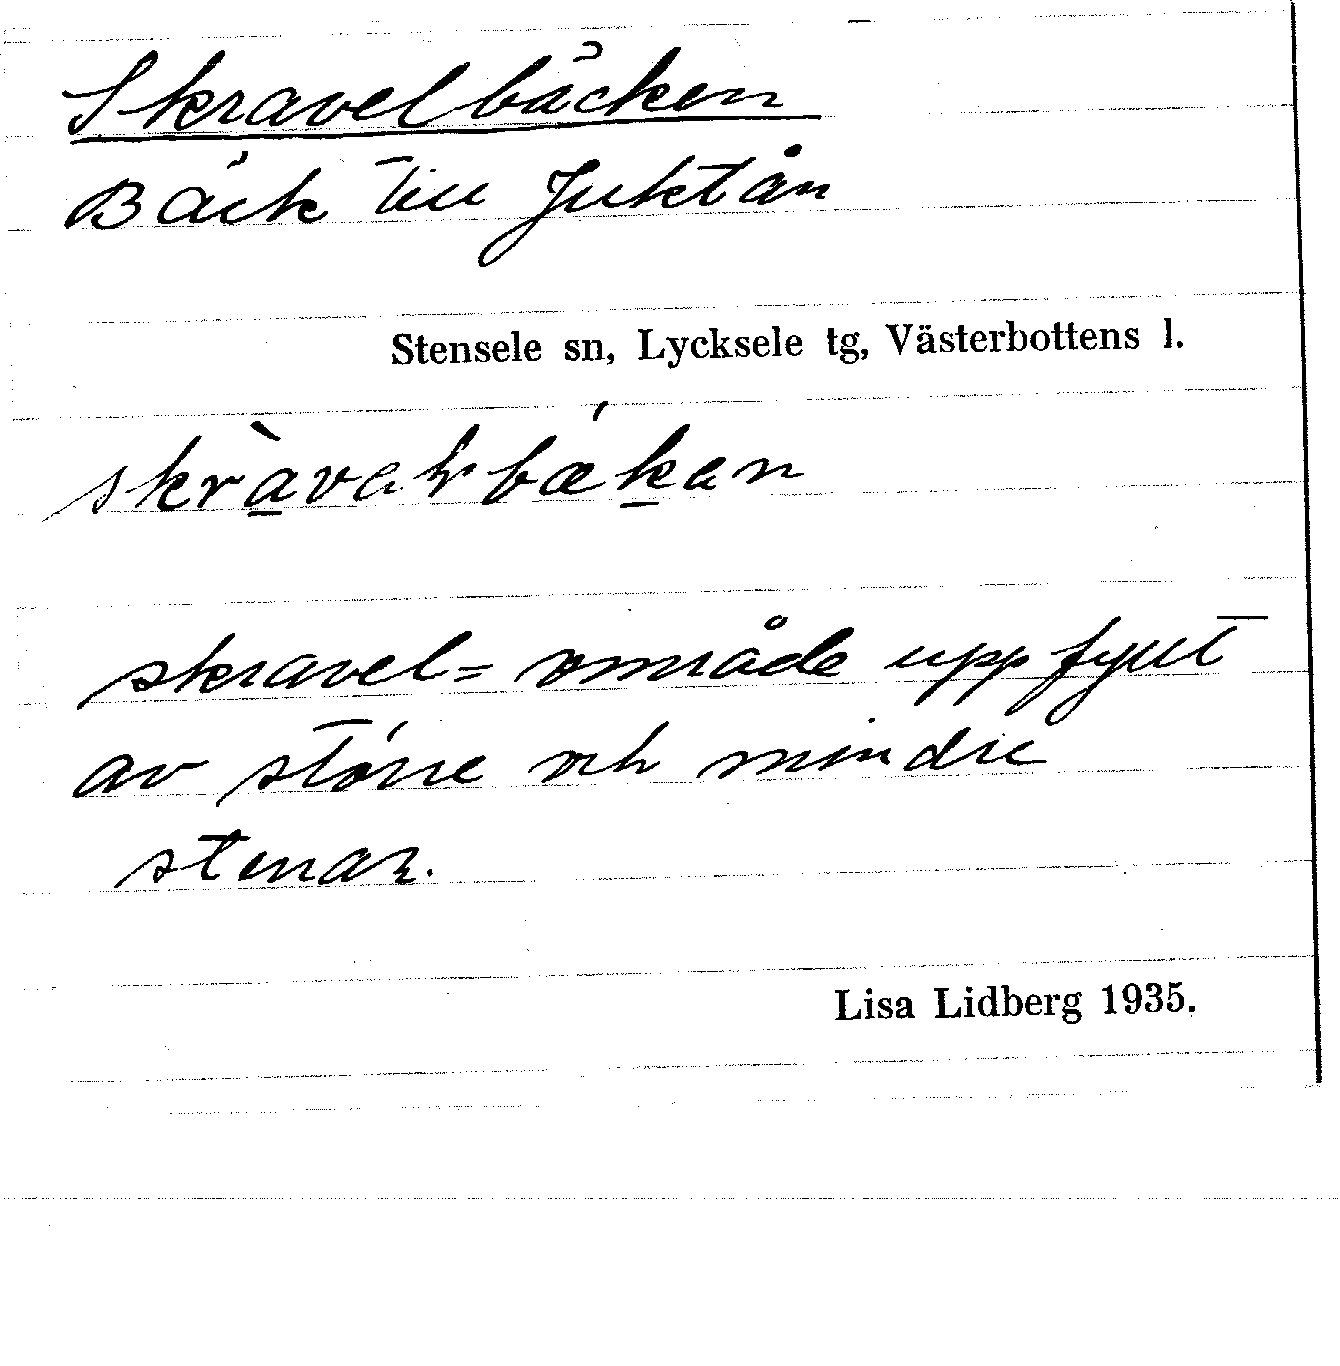 Skravelbäcken
Bäck till Juktån
Stensele sn, Lycksele tg, Västerbottens l.
skravel = område uppfyllt
av större och mindre
stenar.
Lisa Lidberg 1935.